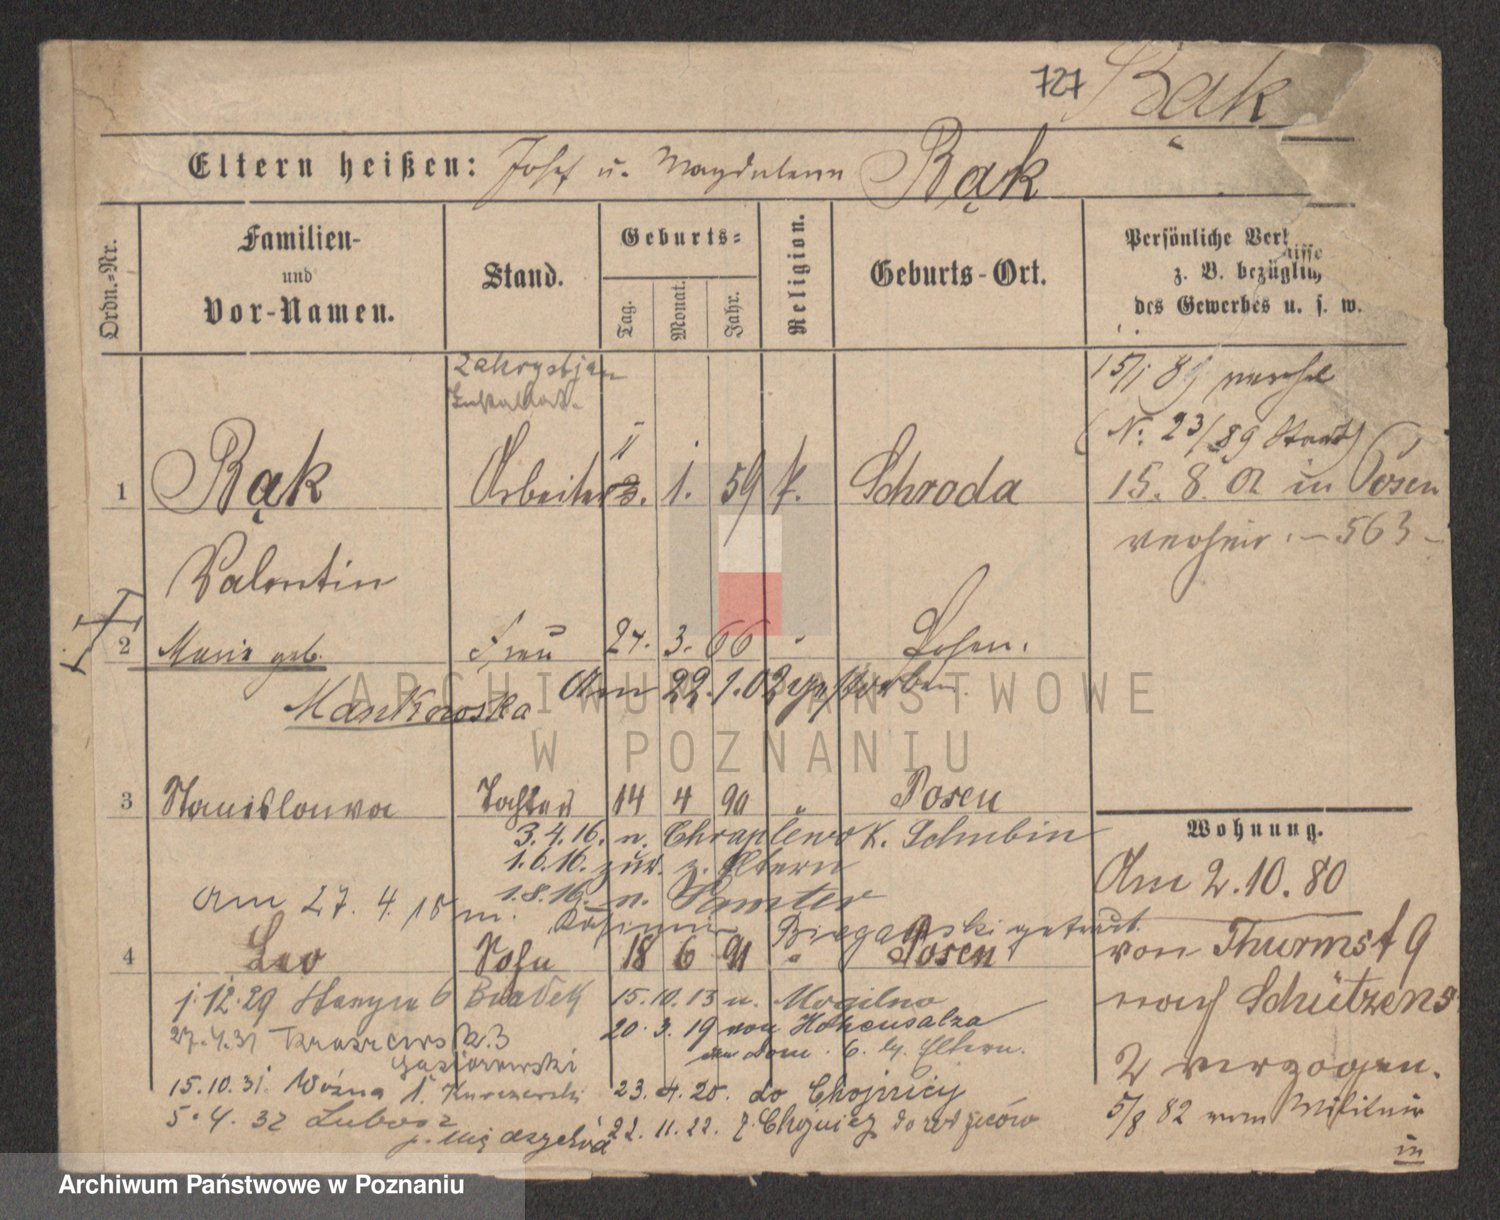 727 Bąk
Eltern heißen: Josef u. Magdalena Bąk
Ordn.-Nr.
Familien-
und
Vor-Namen.
Stand.
Geburts-
Tag.
Monat.
Jahr.
Religion.
Geburts-Ort.
Persönliche Ver
z. B. bezüglich
des Gewerbes u. s. w.
Zakrystjan
15/1 89
(N. 23/89
1 Bąk Arbeiter 1. 59 k. Schroda 15. 8. 02 in Posen
verheir. – 563 –
Valentin
2 Marie geb. Frau 27. 3. 66 " Posen.
Mankowska Am 22.1.02 gestorben.
3 Stanislouva Tochter 14 4 90 " Posen
3.4.16. n. Chraplewo K. Schubin
Wohnung.
1.6.16. zur. z. Eltern
Am 2.10.80
1.8.16. n. Samter
Am 27. 4. 18 m. Biegański getraut.
4 Leo Sohn 18 6 91 " Posen
von Thurmst 9
1.12.29 6 15.10.13 n. Mogilno
nach Schützens
27.4.31 20.3.19 von Hohensalza
Gąsiorowski
2 verzogen.
15.10.31. Woźna 23.4.20. do Chojnicy
5/8 82 vom Militair
5.4.32 Lubosz 22.11.22. z Chojnicz do rodziców
in
ARCHIWUM PAŃSTWOWE
W POZNANIU
Archiwum Państwowe w Poznaniu